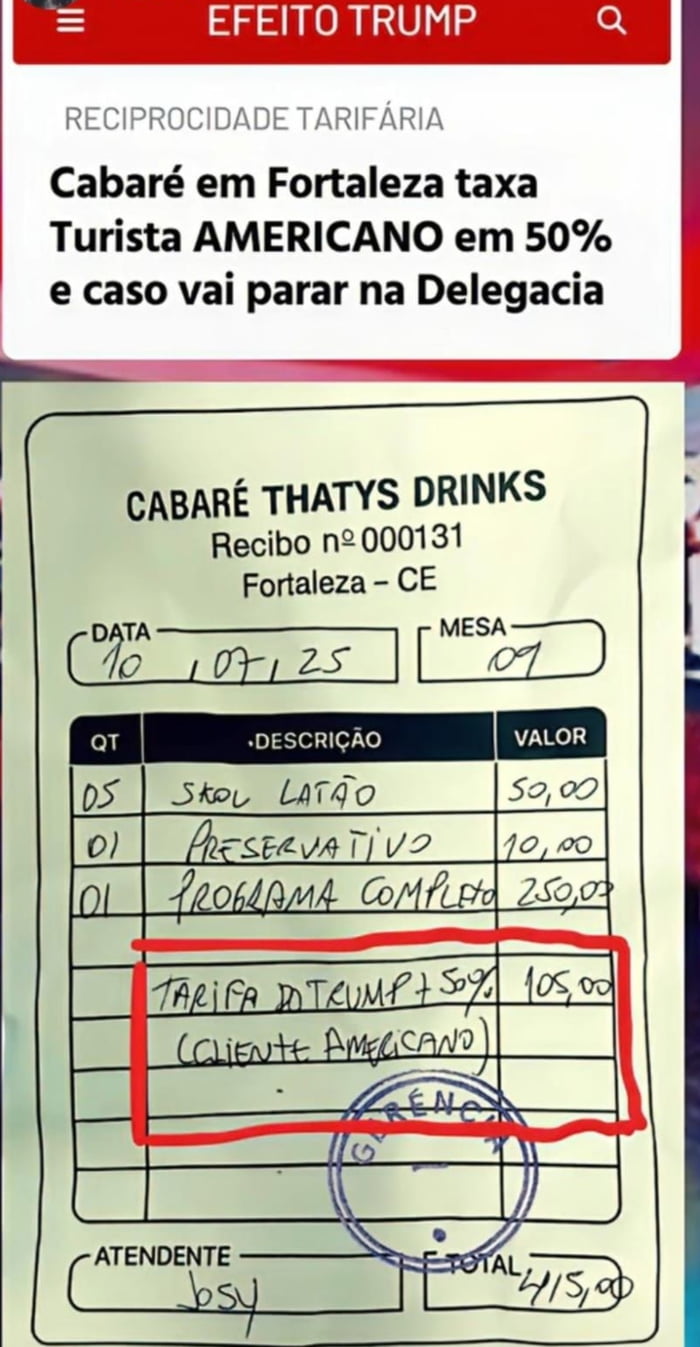 EFEITO TRUMP
RECIPROCIDADE TARIFÁRIA
Cabaré em Fortaleza taxa
Turista AMERICANO em 50%
e caso vai parar na Delegacia
CABARÉ THATYS DRINKS
Recibo nº 000131
Fortaleza – CE
DATA MESA
10 / 07 / 25 09
QT DESCRIÇÃO VALOR
05 SKOL LATÃO 50,00
01 PRESERVATIVO 10,00
01 PROGRAMA COMPLETO 250,00
TARIFA DO TRUMP + 50% 105,00
(CLIENTE AMERICANO)
GERÊNCIA
ATENDENTE TOTAL
Josy 415,00